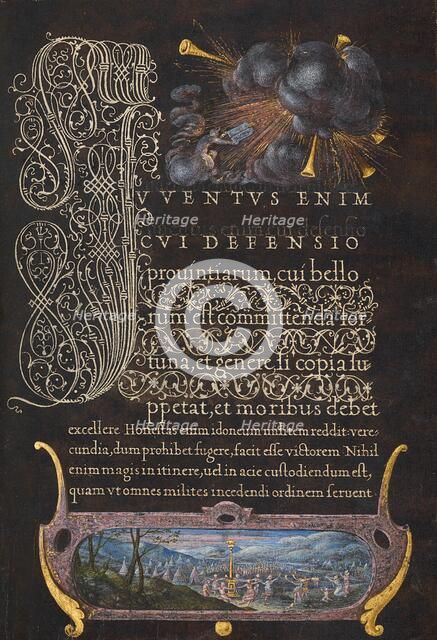 IVVENTVS ENIM
CVI DEFENSIO
prouintiarum, cui bello
rum est committenda for
tuna, et genere, si copia su
ppetat, et moribus debet
excellere Honestas enim idoneum militem reddit: vere
cundia, dum prohibet fugere, facit esse victorem Nihil
enim magis in itinere, uel in acie custodiendum est,
quam vt omnes milites incedendi ordinem seruent
Heritage Heritage
Heritage Heritage
Heritage Heritage
Heritage Heritage
©